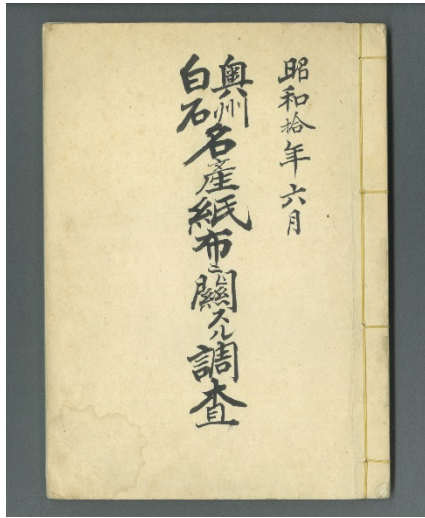 昭和拾年六月
奥州白石名産紙布ニ關スル調査